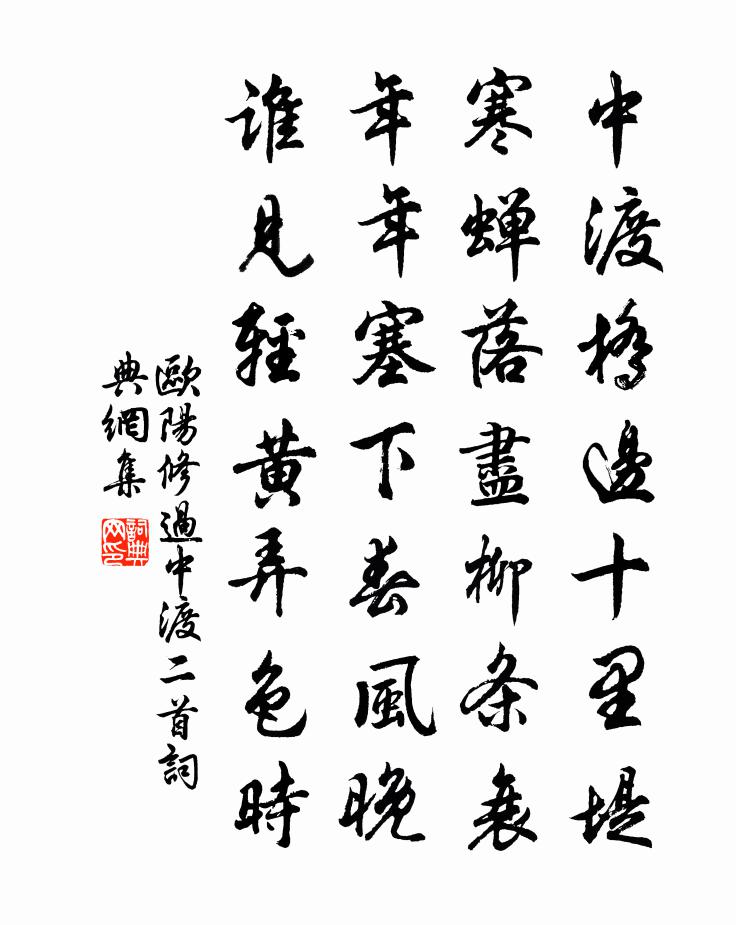 中渡橋邊十里堤
寒蝉落盡柳条衰
年年塞下春風晚
誰見輕黃弄色時
歐陽修過中渡二首詞
典網集
詞典網印